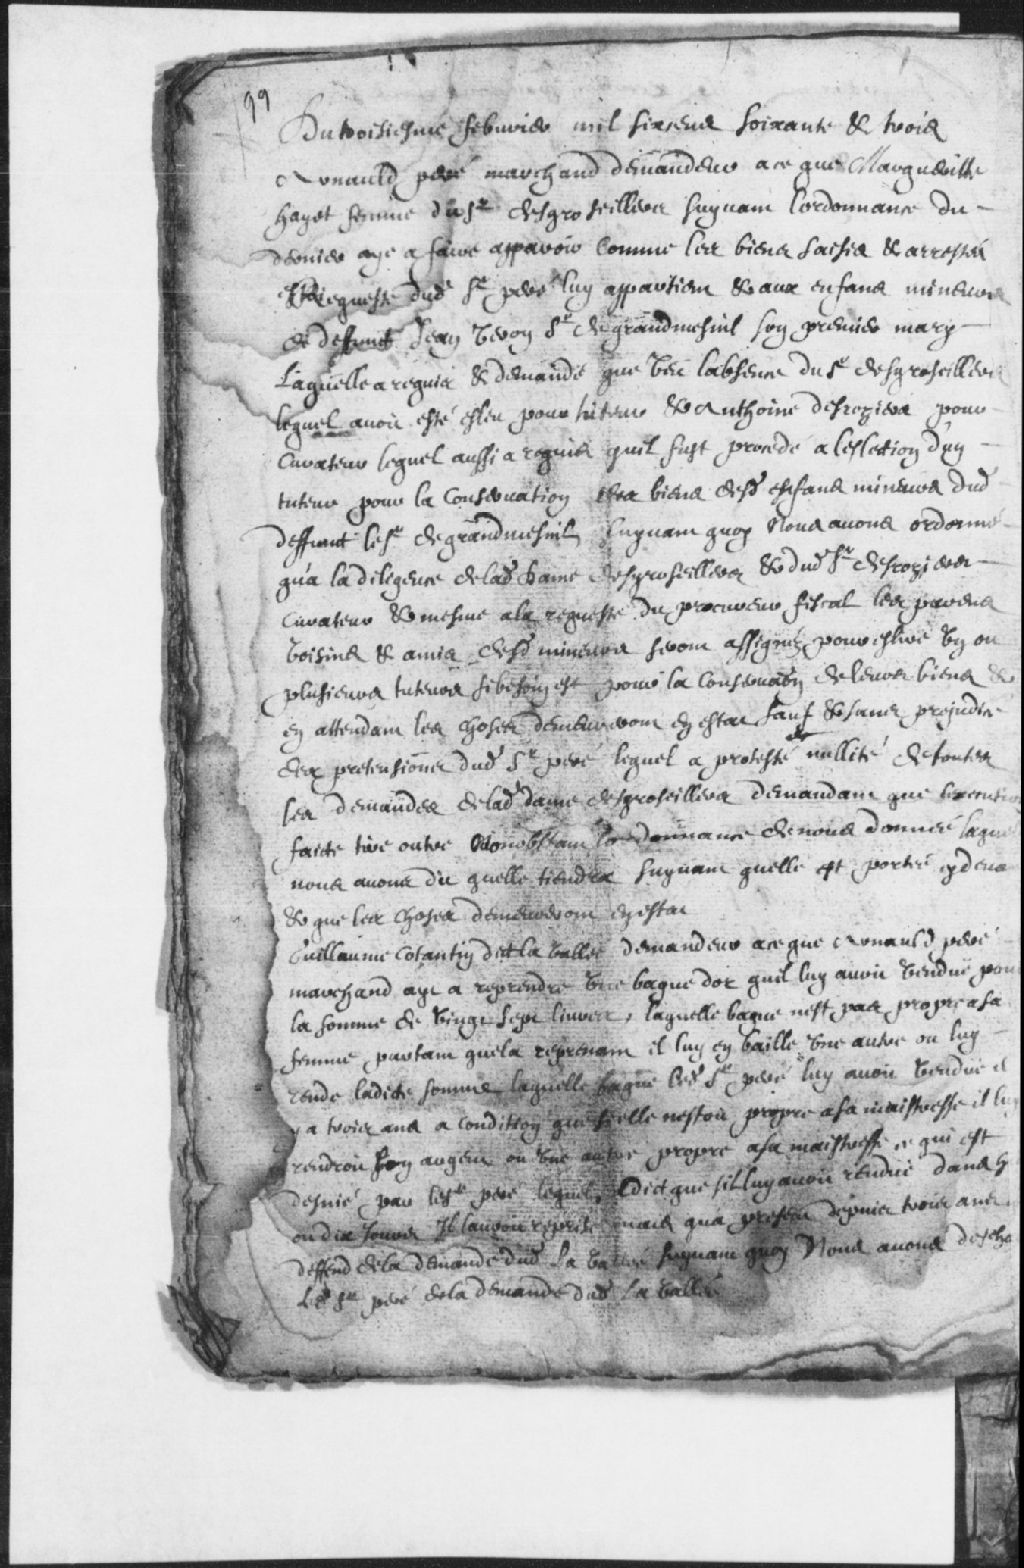 99
Du troisiesme febvrier mil sixcens soixante & trois
Arnauld peré marchand demandeur a ce que Margueritte
hayet femme du Sr desgroseilliers suyvant lordonnance du
dernier aye a faire apparoir Comme les biens saisis & arrestés
requeste dud Sr peré luy appartiene & aux enfans mineurs
de deffunct Jean Veron Sr de grandmesnil son premier mary
Laquelle a requis & demandé que veu labsence du Sr desgroseilliers
lequel avoit esté esleu pour tuteur & Anthoine desrosiers pour
Curateur lequel aussi a requis quil fust procedé a leslection dun
tuteur pour la Conservation des biens desd enfans mineurs dud
deffunct le Sr de grandmesnil Suyvant quoy Nous avons ordonné
qua la diligence de lad dame desgroseilliers & dud Sr desrosiers
Curateur & mesme a la requeste du procureur fiscal les parens
Voisins & amis desd mineurs seront assignez pour eslire un ou
plusieurs tuteurs si besoin est pour la Conservaon de leurs biens &
en attendant les choses demeureront en estat sauf & sans prejudice
des pretensions dud Sr peré lequel a protesté de nullité de toutes
les demandes de lad dame desgroseilliers demandant que
faicte tire outre Nonobstant lordonnance de nous donnée
nous avons dit quelle tiendra suyvant quelle est portée cy devant
& que les choses demeureront en estat
Guillaume Cotantin dit la Vallée demandeur a ce que Arnauld peré
marchand aye a reprendre une bague dor quil luy avoit vendue pour
la somme de vingt sept livres, laquelle bague nest pas propre a sa
femme partant que la reprenant il luy en baille une autre ou luy
rende ladite somme laquelle bague led Sr peré luy avoit vendue il
y a trois ans a condition que si elle nestoit propre a sa maistresse il luy
rendroit son argent ou une autre propre a sa maistresse ce qui est
desnié par led Sr peré lequel dict que sil luy avoit rendue dans
ou dix jours Il lauroit reprise mais qua present depuis trois ans
deffend de la demande dud La Vallée Suyvant quoy Nous avons
Led Sr peré de la demande dud la Vallée